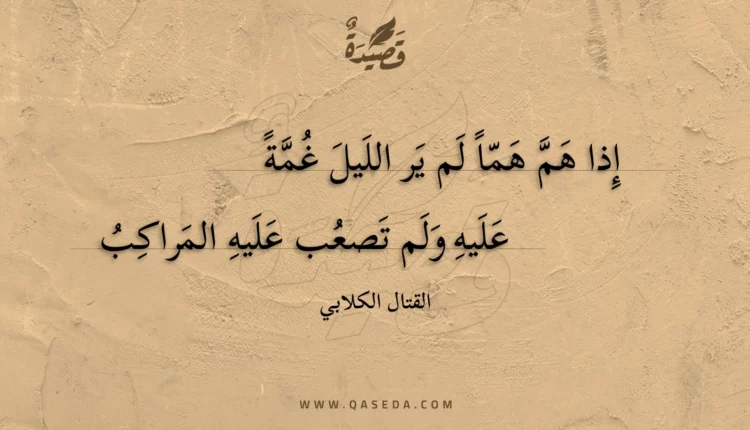 قَصِيْدَةٌ
إِذا هَمَّ هَمّاً لَم يَر اللَيلَ غُمَّةً
عَلَيهِ وَلَم تَصعُب عَلَيهِ المَراكِبُ
القتال الكلابي
WWW.QASEDA.COM